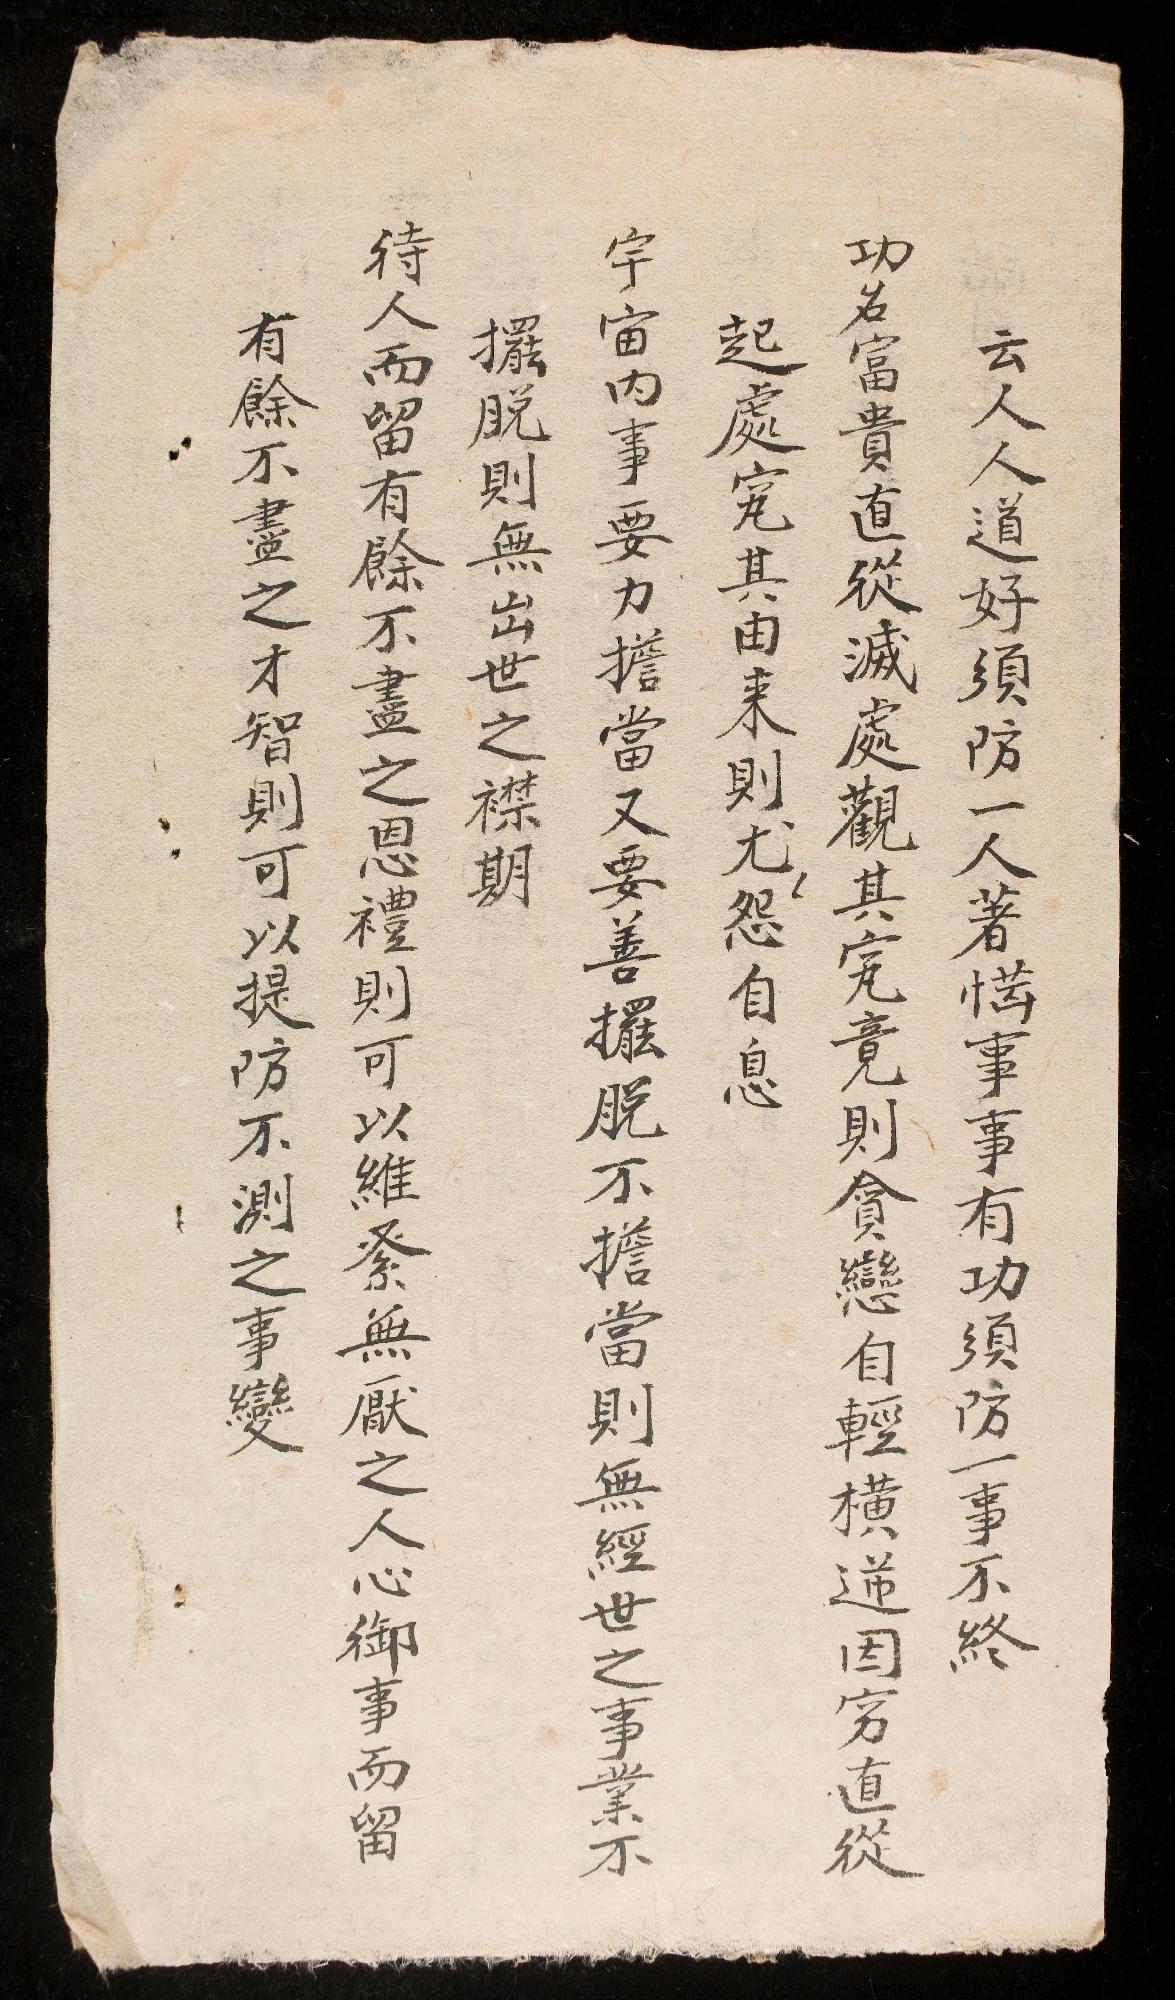 云人人道好須防一人著惱事事有功須防一事不終
功名富貴直從滅處觀其究竟則貪戀自輕橫逆因穷直從
起處究其由来則尤怨自息
宇宙内事要力擔當又要善擺脱不擔當則無經世之事業不
擺脱則無出世之襟期
待人而留有餘不盡之恩禮則可以維繫無厭之人心御事而留
有餘不盡之才智則可以提防不測之事變